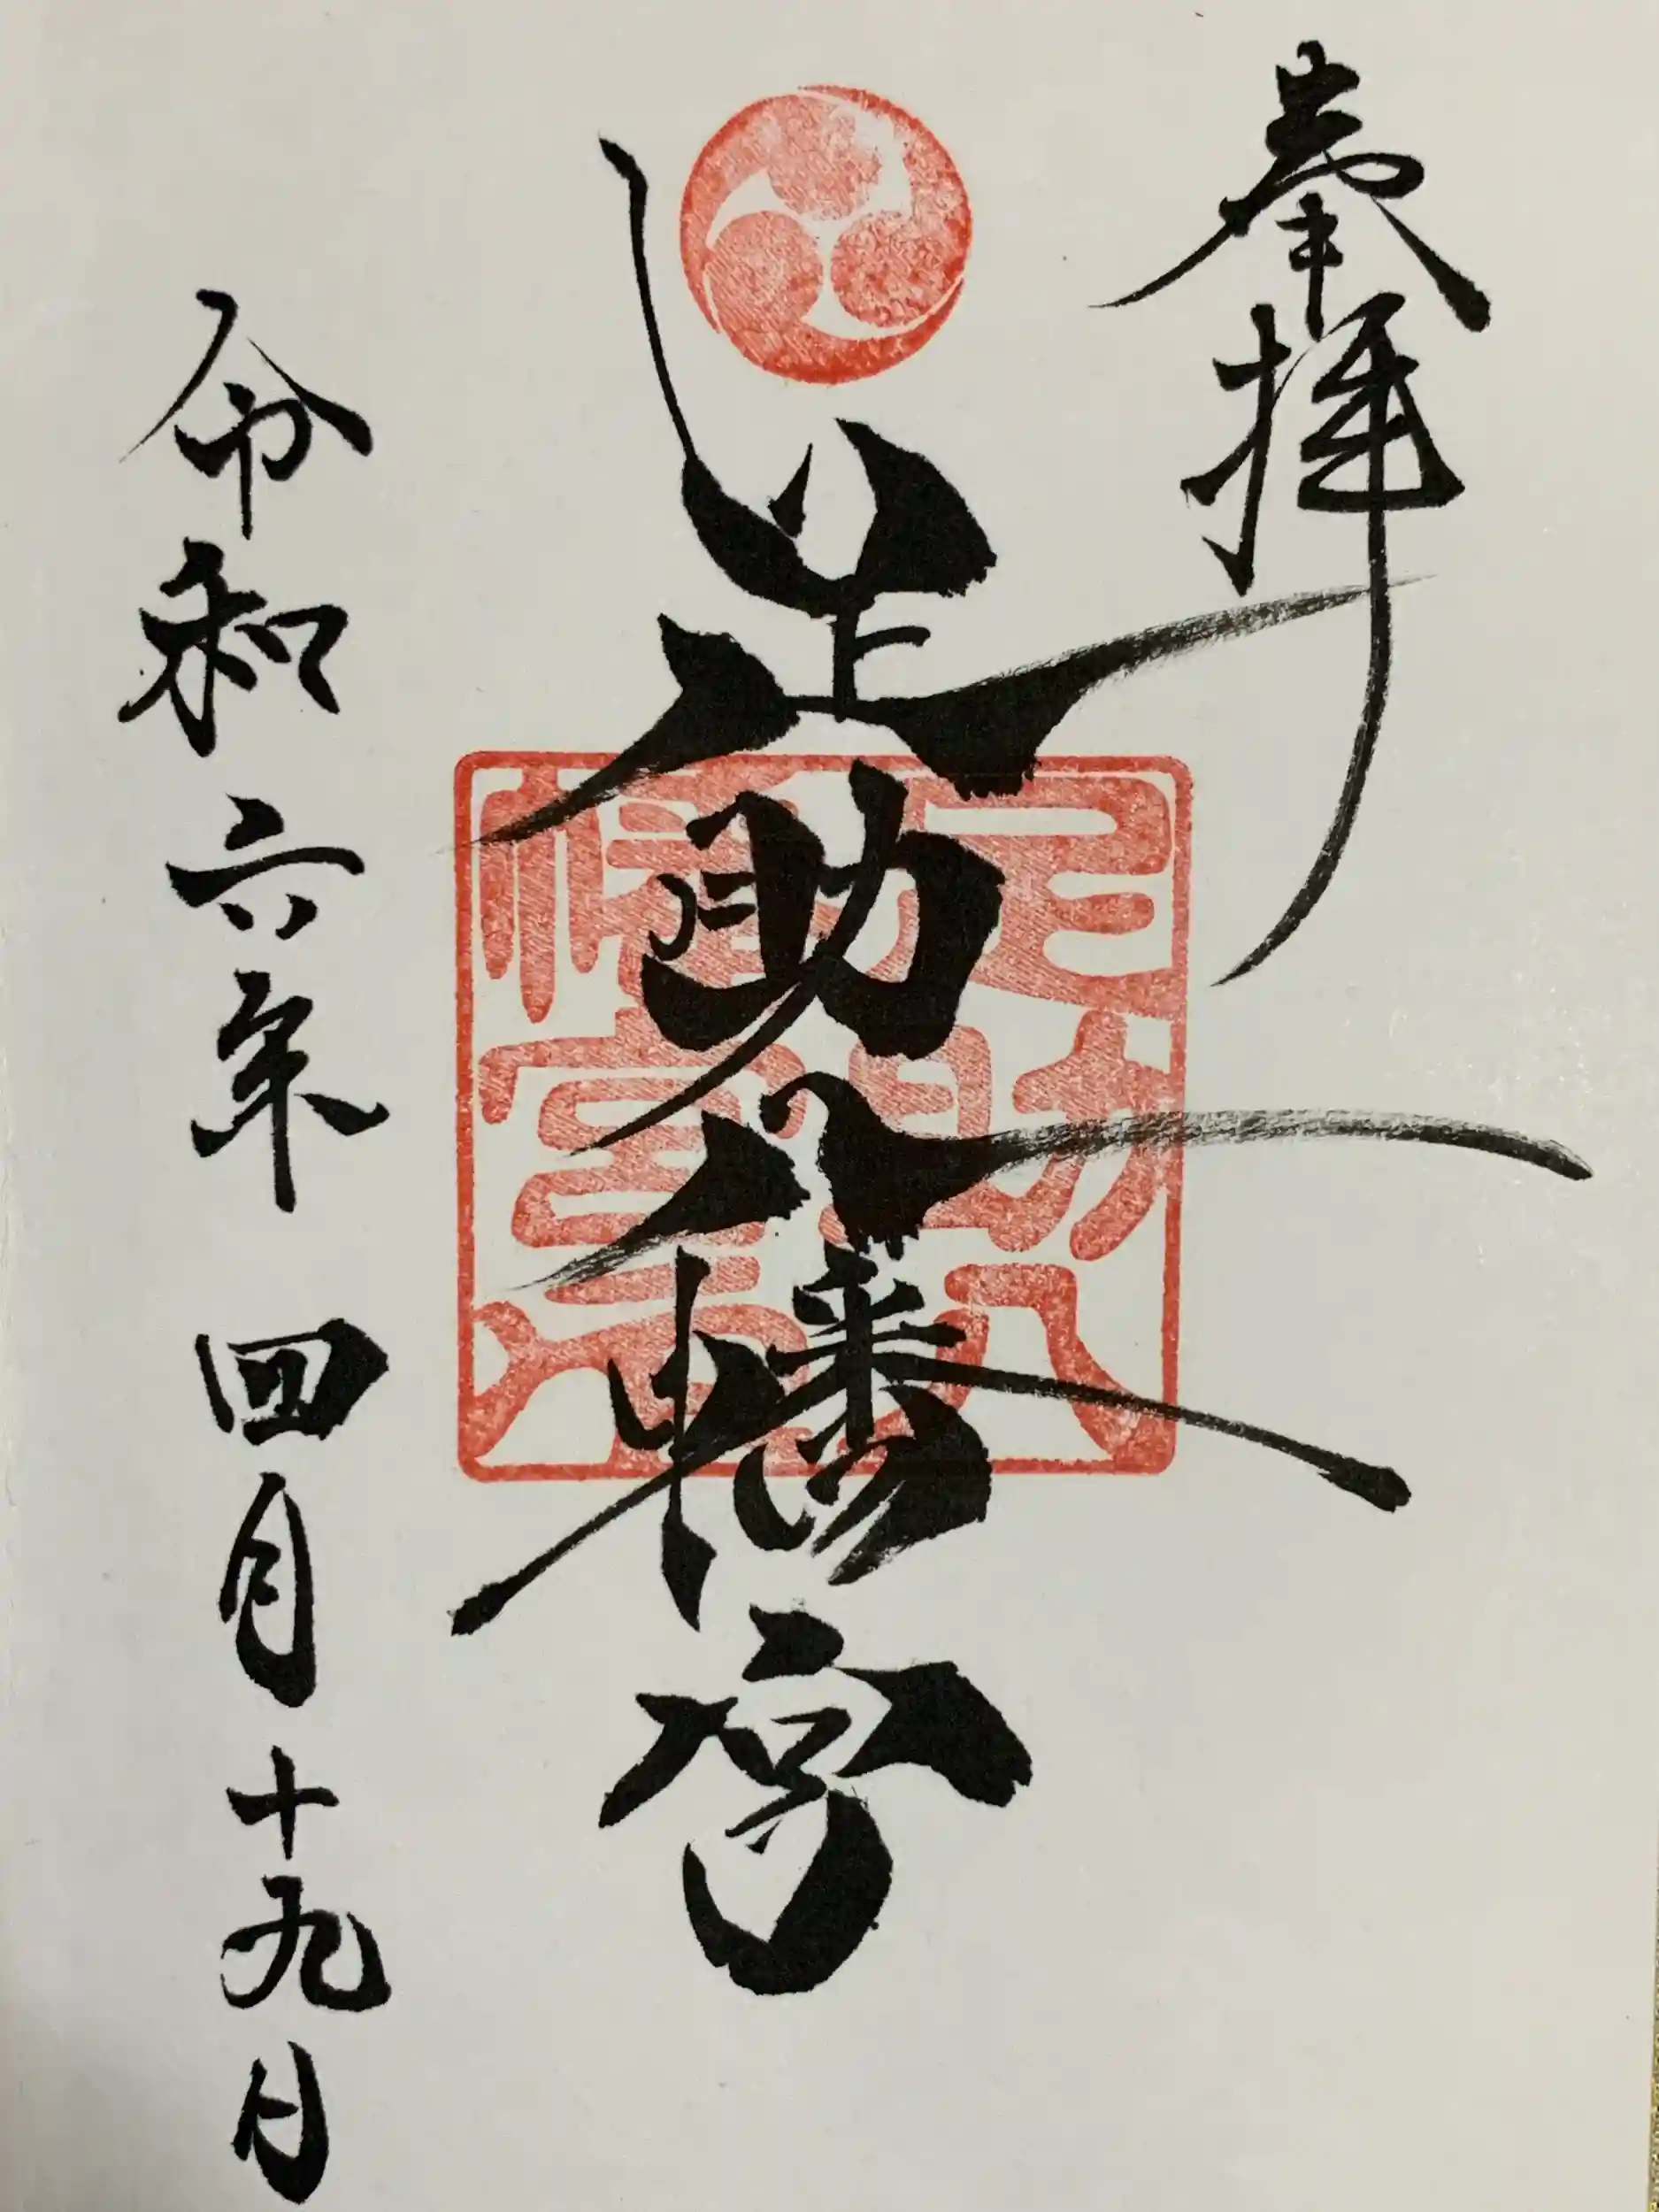 奉拝
足助八幡宮
足助八
幡宮
令和六年 四月十九日